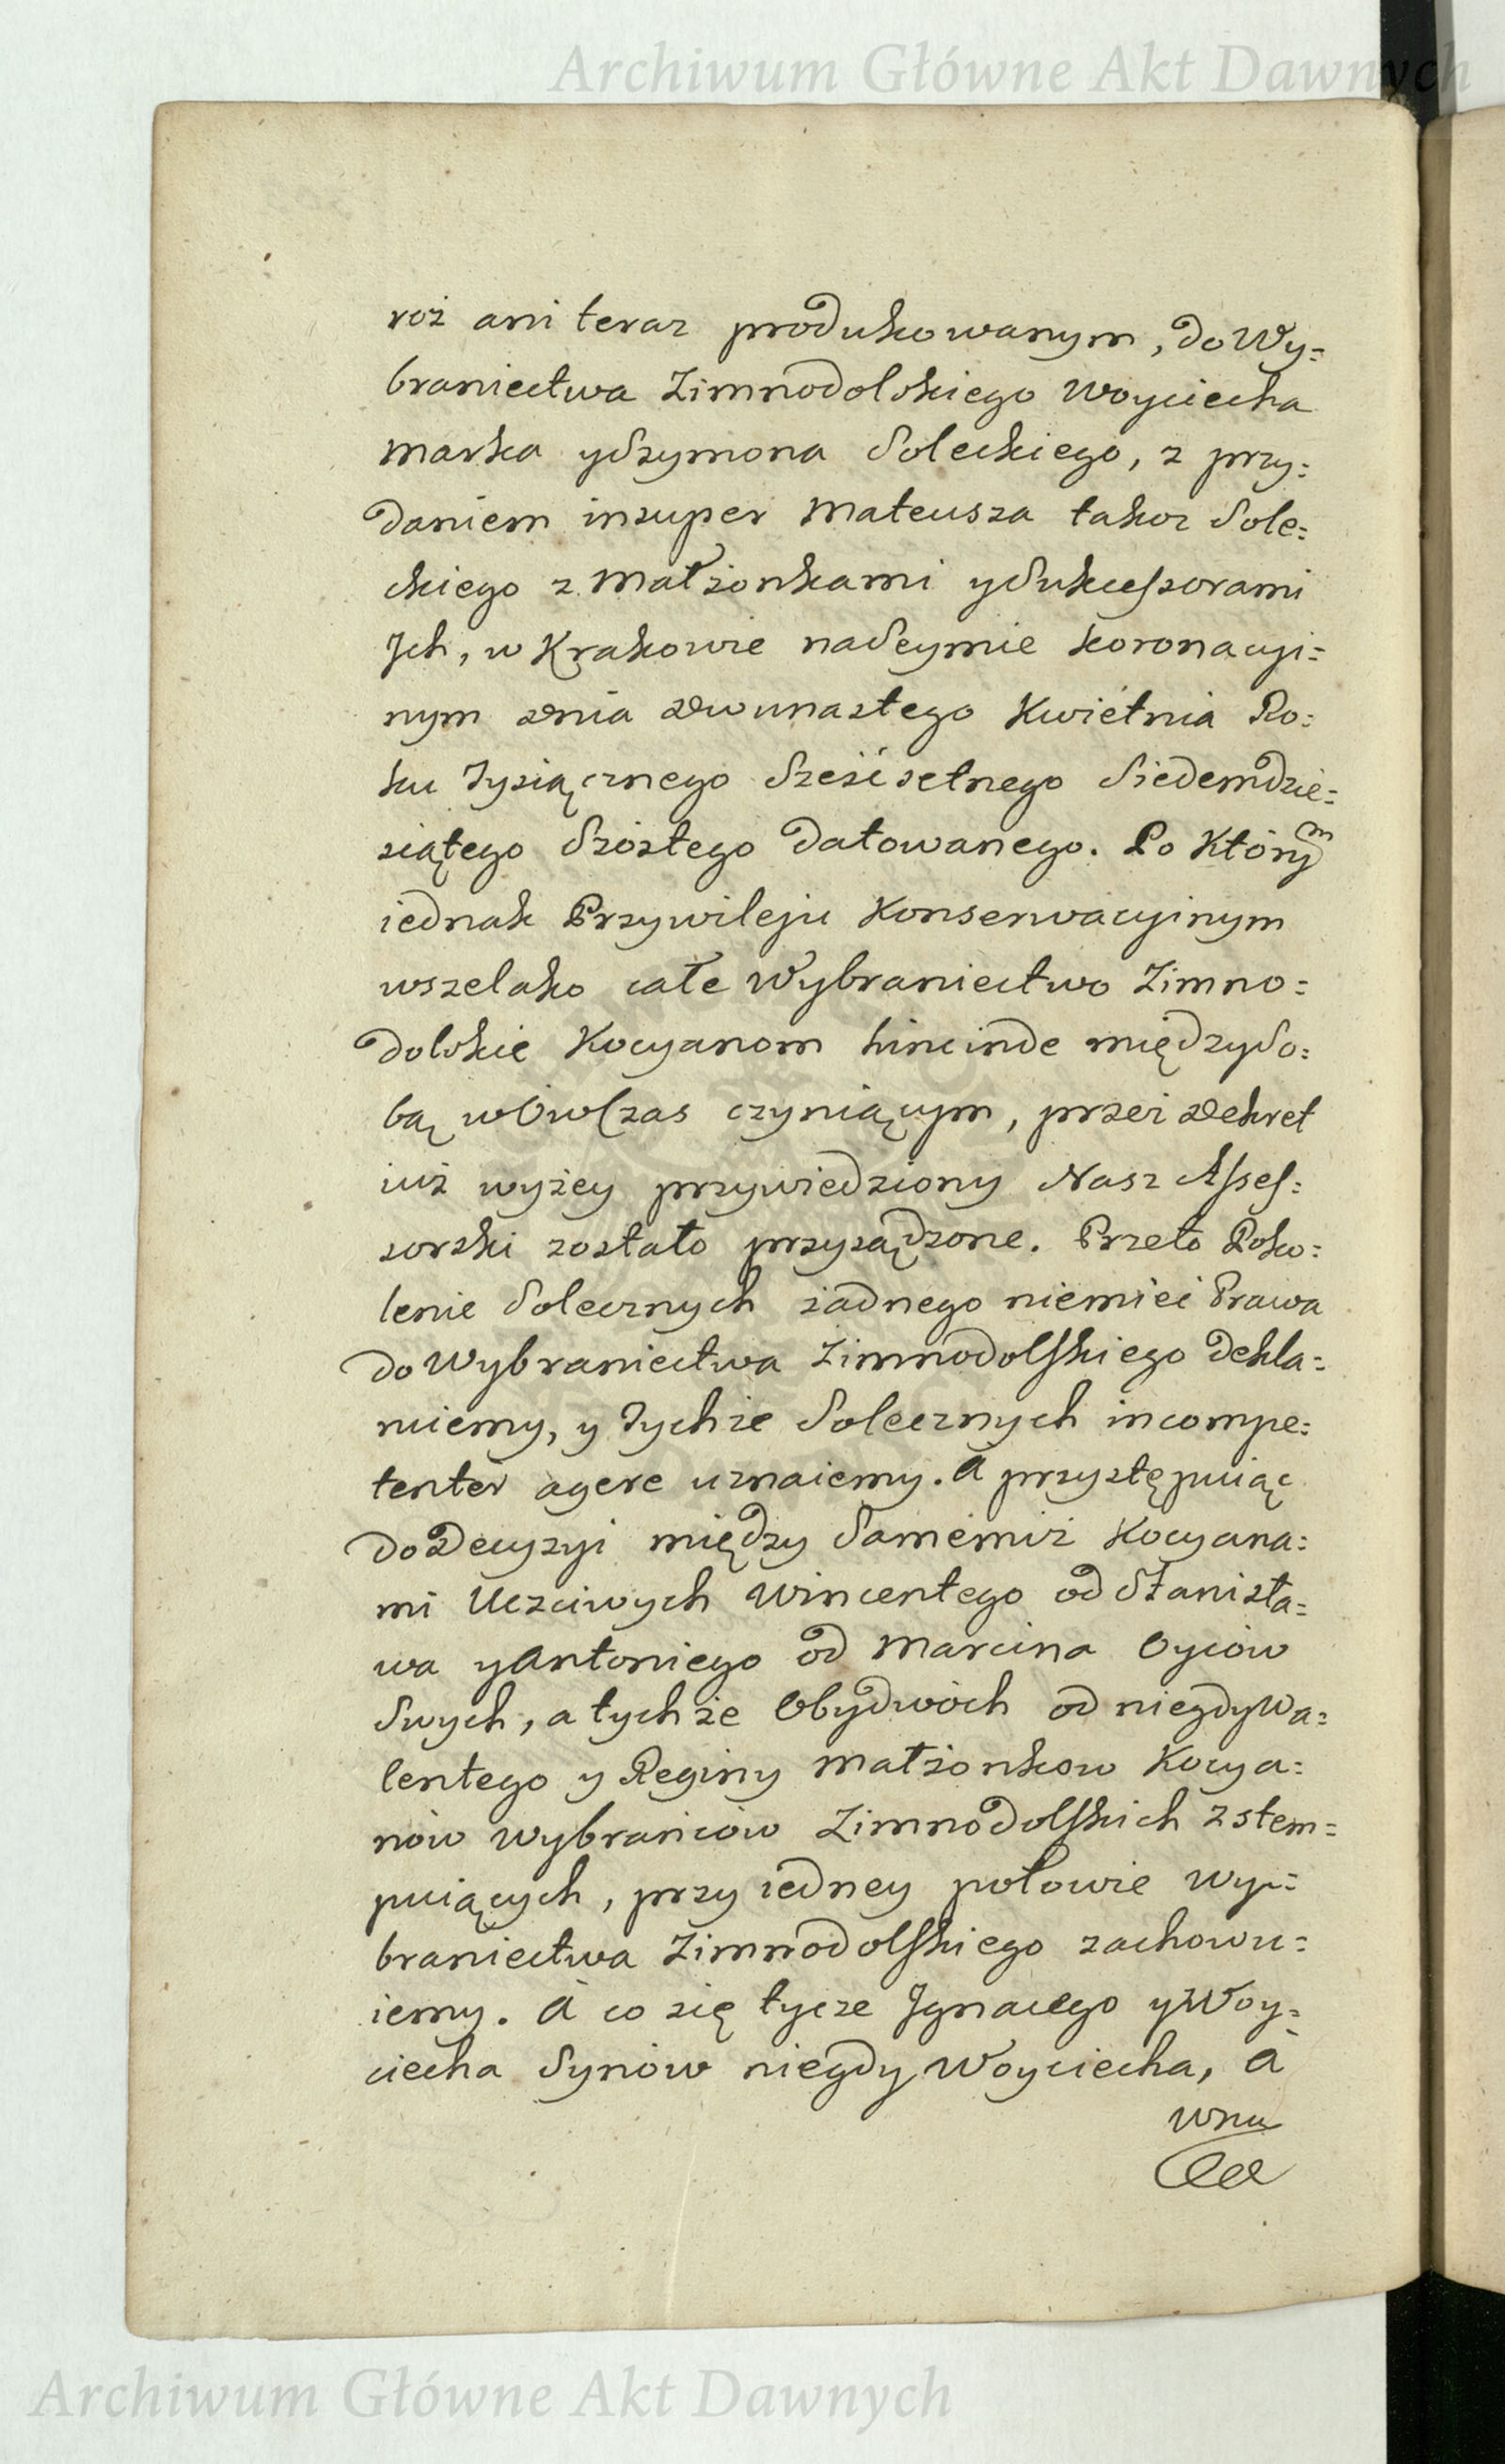 Archiwum Główne Akt Dawnych
roż ani teraz produkowanym, do Wy=
braniectwa Zimnodolskiego Woyciecha
Marka y Szymona Soleckiego, z przy=
daniem insuper Mateusza takoz Sole=
ckiego z Małżonkami y Sukcessorami
Jch, w Krakowie na Seymie koronacyi=
nym Dnia Dwunastego Kwietnia Ro=
ku Tysiącznego Sześćsetnego Siedemdzie=
siątego Szóstego Datowanego. Po Którym
iednak Przywileju Konserwacyinym
wszelako całe Wybraniectwo Zimno=
dolskie Kocyanom hincinde między So=
bą wówczas czyniącym, przez Dekret
iuż wyżey przywiedziony Nasz Asses=
sorski zostało przysądzone. Przeto Poko=
lenie Solecznych żadnego niemieć Prawa
do Wybraniectwa Zimnodolskiego dekla=
ruiemy, y Tychże Solecznych incompe=
tenter agere uznaiemy. A przystępuiąc
do Decyzyi między Samemiż Kocyana=
mi Uczciwych Wincentego od Stanisła=
wa y Antoniego od Marcina Oyców
Swych, a tychże Obydwóch od niegdy Wa=
lentego y Reginy Małżonkow Kocya=
nów Wybrańców Zimnodolskich zstem=
puiących, przy iedney połowie Wy=
braniectwa Zimnodolskiego zachowu=
iemy. A co się tycze Jgnacego y Woy=
ciecha Synów niegdy Woyciecha, A
wnu
Archiwum Główne Akt Dawnych